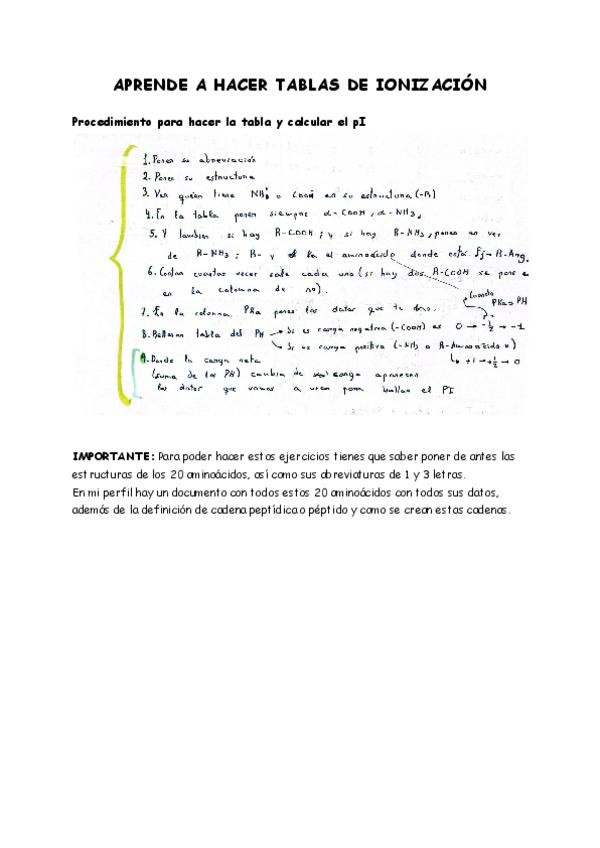 APRENDE A HACER TABLAS DE IONIZACIÓN
Procedimiento para hacer la tabla y calcular el pI
1. Poner su abreviación
2. Poner su estructura
3. Ver quien tiene NH3 o COOH en su estructura (-R)
4. En la tabla poner siempre α-COOH, α-NH3,
5. Y tambien si hay R-COOH; y si hay R-NH3, poner en vez
de R-NH3; R- y el aminoácido donde está. Ej→ R-Arg.
6. Contar cuantas veces sale cada uno (si hay dos R-COOH se pone 2
en la columna de nº).
Cuando
PKa=PH
7. En la columna PKa pones los datos que te dan.
8. Rellenar tabla del PH → Si es carga negativa (-COOH) es 0 → -½ → -1
→ Si es carga positiva (-NH3 o R-Aminoacido)
+1→+½→0
9. Donde la carga neta
(suma de los PH) cambia de carga aparecen
los datos que vamos a usar para hallar el PI
IMPORTANTE: Para poder hacer estos ejercicios tienes que saber poner de antes las
estructuras de los 20 aminoácidos, así como sus abreviaturas de 1 y 3 letras.
En mi perfil hay un documento con todos estos 20 aminoácidos con todos sus datos,
además de la definición de cadena peptídica o péptido y como se crean estas cadenas.